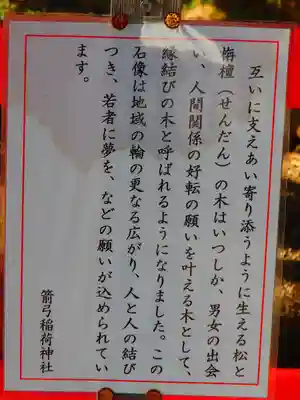 互いに支えあい寄り添うように生える松と
栴檀（せんだん）の木はいつしか、男女の出会
い、人間関係の好転の願いを叶える木として、
縁結びの木と呼ばれるようになりました。この
石像は地域の輪の更なる広がり、人と人の結び
つき、若者に夢を、などの願いが込められてい
ます。
箭弓稲荷神社